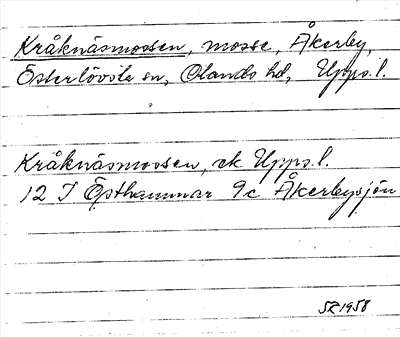 Kråknäsmossen, mosse, Åkerby,
Österlövsta sn, Olands hd, Upps.l.
Kråknäsmossen, ek Upps.l.
12 I Östhammar 9c Åkerbysjön
SZ 1958